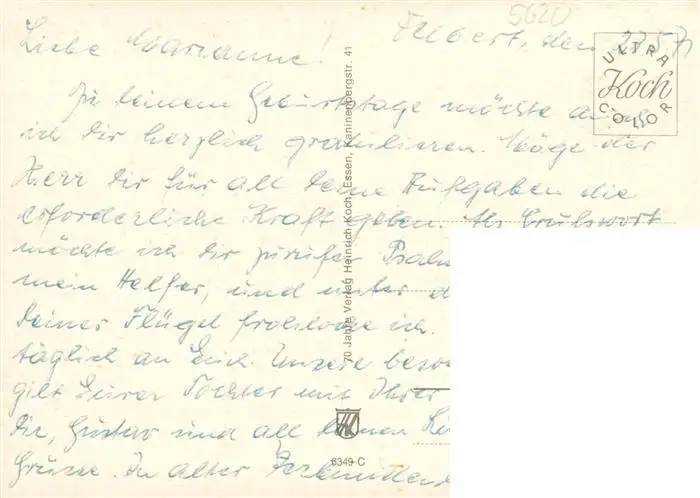 5620
Velbert, den 27.5.71
Liebe Marianne!
Zu deinem Geburtstage möchte auch
ich dir herzlich gratulieren. Möge der
Herr dir für all deine Aufgaben die
erforderliche Kraft geben. Als Grußwort
möchte ich dir zurufen Psalm
mein Helfer, und unter d
deiner Flügel frohlocke ich.
täglich an Euch. Unsere beso
gilt Eurer Tochter mit Ihrer
dir, Gustav und all deinen
Grüsse. In alter
ULTRA
Koch
COLOR
70 Jahre Verlag Heinrich Koch, Essen, Kaninenbergstr. 41
6349 C